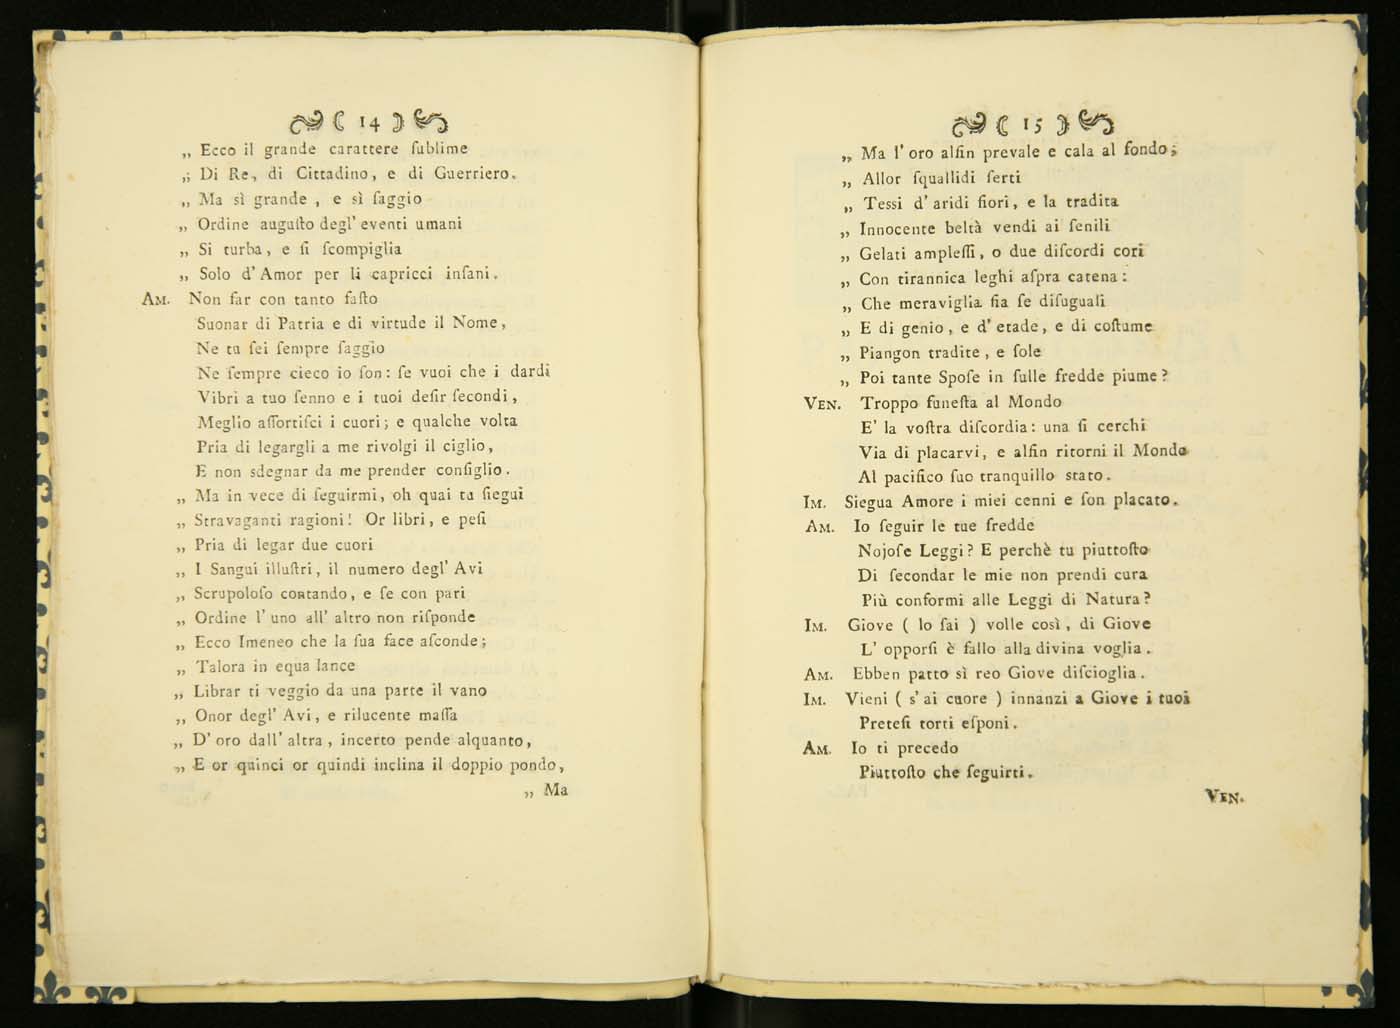 ( 14 )
„ Ecco il grande carattere ſublime
„ Di Re, di Cittadino, e di Guerriero.
„ Ma sì grande, e sì ſaggio
„ Ordine auguſto degl' eventi umani
„ Si turba, e ſi ſcompiglia
„ Solo d'Amor per li capricci inſani.
AM. Non far con tanto faſto
Suonar di Patria e di virtude il Nome,
Ne tu ſei ſempre ſaggio
Ne ſempre cieco io ſon: ſe vuoi che i dardi
Vibri a tuo ſenno e i tuoi deſir ſecondi,
Meglio aſſortiſci i cuori; e qualche volta
Pria di legargli a me rivolgi il ciglio,
E non sdegnar da me prender conſiglio.
„ Ma in vece di ſeguirmi, oh quai tu ſiegui
„ Stravaganti ragioni! Or libri, e peſi
„ Pria di legar due cuori
„ I Sangui illuſtri, il numero degl' Avi
„ Scrupoloſo contando, e ſe con pari
„ Ordine l' uno all' altro non riſponde
„ Ecco Imeneo che la ſua face aſconde;
„ Talora in equa lance
„ Librar ti veggio da una parte il vano
„ Onor degl' Avi, e rilucente maſſa
„ D' oro dall' altra, incerto pende alquanto,
„ E or quinci or quindi inclina il doppio pondo,
„ Ma
( 15 )
„ Ma l' oro alfin prevale e cala al fondo;
„ Allor ſquallidi ſerti
„ Tessi d' aridi fiori, e la tradita
„ Innocente beltà vendi ai ſenili
„ Gelati ampleſſi, o due diſcordi cori
„ Con tirannica leghi aſpra catena:
„ Che meraviglia fia ſe diſuguali
„ E di genio, e d' etade, e di coſtume
„ Piangon tradite, e ſole
„ Poi tante Spoſe in ſulle fredde piume?
VEN. Troppo funeſta al Mondo
E' la voſtra diſcordia: una ſi cerchi
Via di placarvi, e alfin ritorni il Mondo
Al pacifico ſuo tranquillo stato.
IM. Siegua Amore i miei cenni e ſon placato.
AM. Io ſeguir le tue fredde
Nojoſe Leggi? E perchè tu piuttoſto
Di ſecondar le mie non prendi cura
Più conformi alle Leggi di Natura?
IM. Giove ( lo ſai ) volle così, di Giove
L' opporſi è fallo alla divina voglia.
AM. Ebben patto sì reo Giove diſcioglia.
IM. Vieni ( s' ai cuore ) innanzi a Giove i tuoi
Preteſi torti eſponi.
AM. Io ti precedo
Piuttoſto che ſeguirti.
VEN.